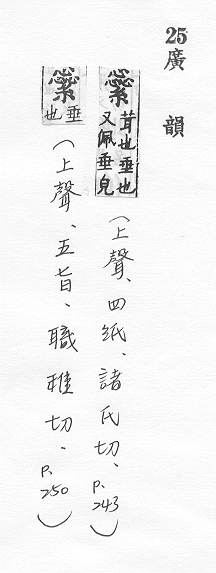 25廣韻
繠 茸也垂也又佩垂皃(上聲、四紙、諸氏切、P.243)
繠 垂也(上聲、五旨、職雉切.P.250)